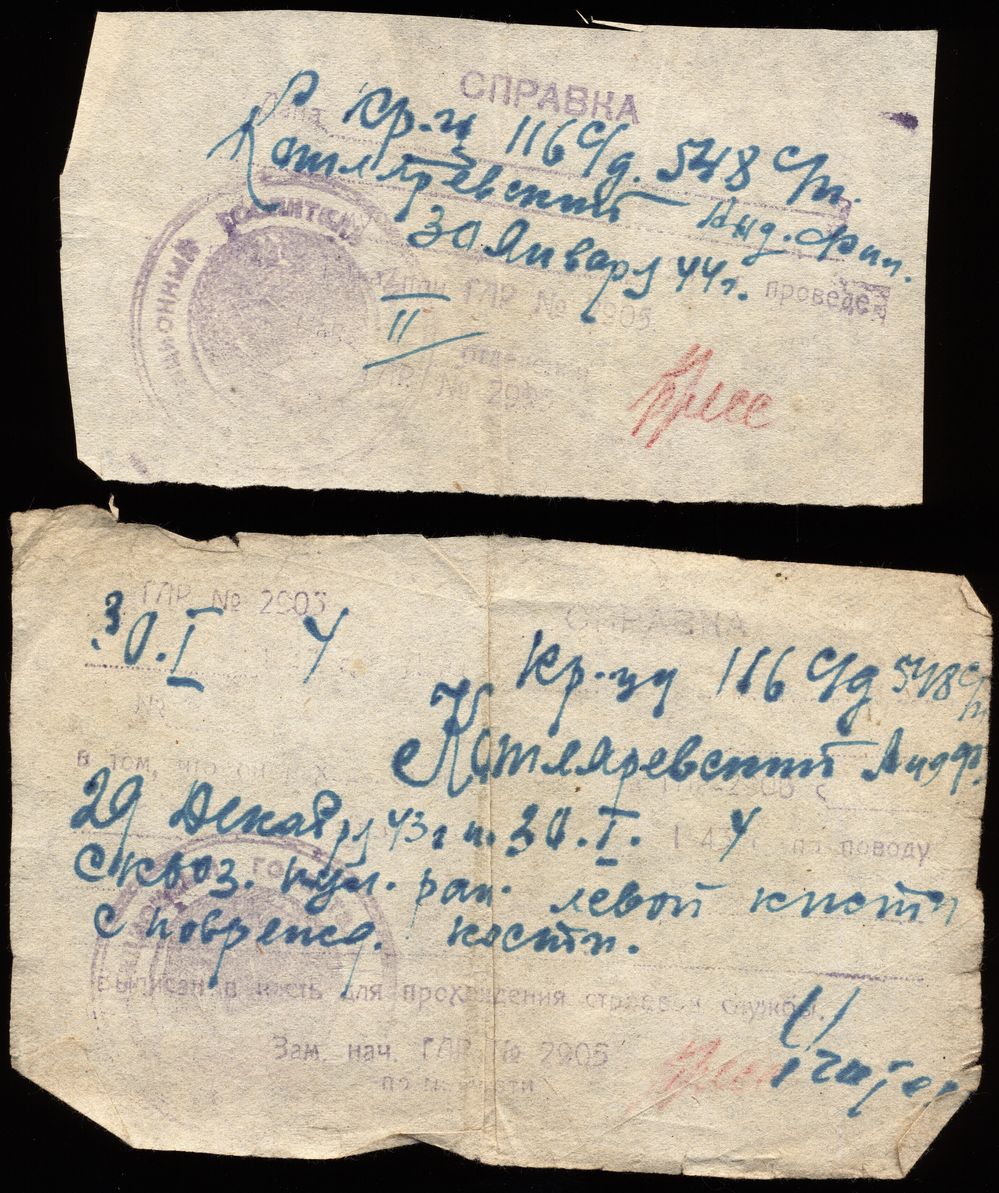 СПРАВКА
Дана кр-ц 116 С/д. 548 С/п.
Котляревский Анд. Фил.
30 Января 44 г. проведе
ГЛР № 2905
II
ГЛР № 290
ГЛР № 2903
30.I 4
СПРАВКА
№
кр-цу 116 С/д 548 С/п
Котляревский Анд Ф.
в том, что он
29 Декабря 43 г п. 30.I. 4
по поводу
Сквоз. пул. ран. левой кисти
с поврежд. кости.
Выписан в часть для прохождения строевой службы.
Зам. нач. ГЛР № 2905